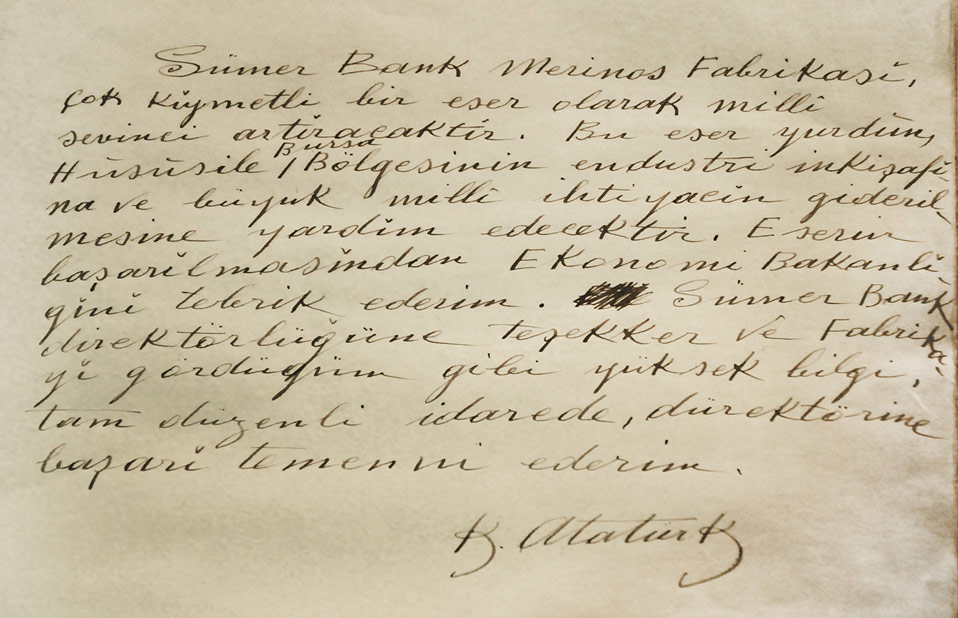 Sümer Bank Merinos Fabrikasi,
çok kiymetli bir eser olarak milli
sevinci artiracaktir. Bu eser yurdun,
Bursa
Hususile / Bölgesinin endustri inkişafi-
na ve büyük milli ihtiyacin gideril-
mesine yardim edecektir. Eserin
başarilmasindan Ekonomi Bakanli-
ğini tebrik ederim. Sümer Bank
direktörlüğüne teşekker ve Fabrika-
yi gördüğüm gibi yüksek bilgi,
tam düzenli idarede, dürektörine
başari temenni ederim.
K. Atatürk